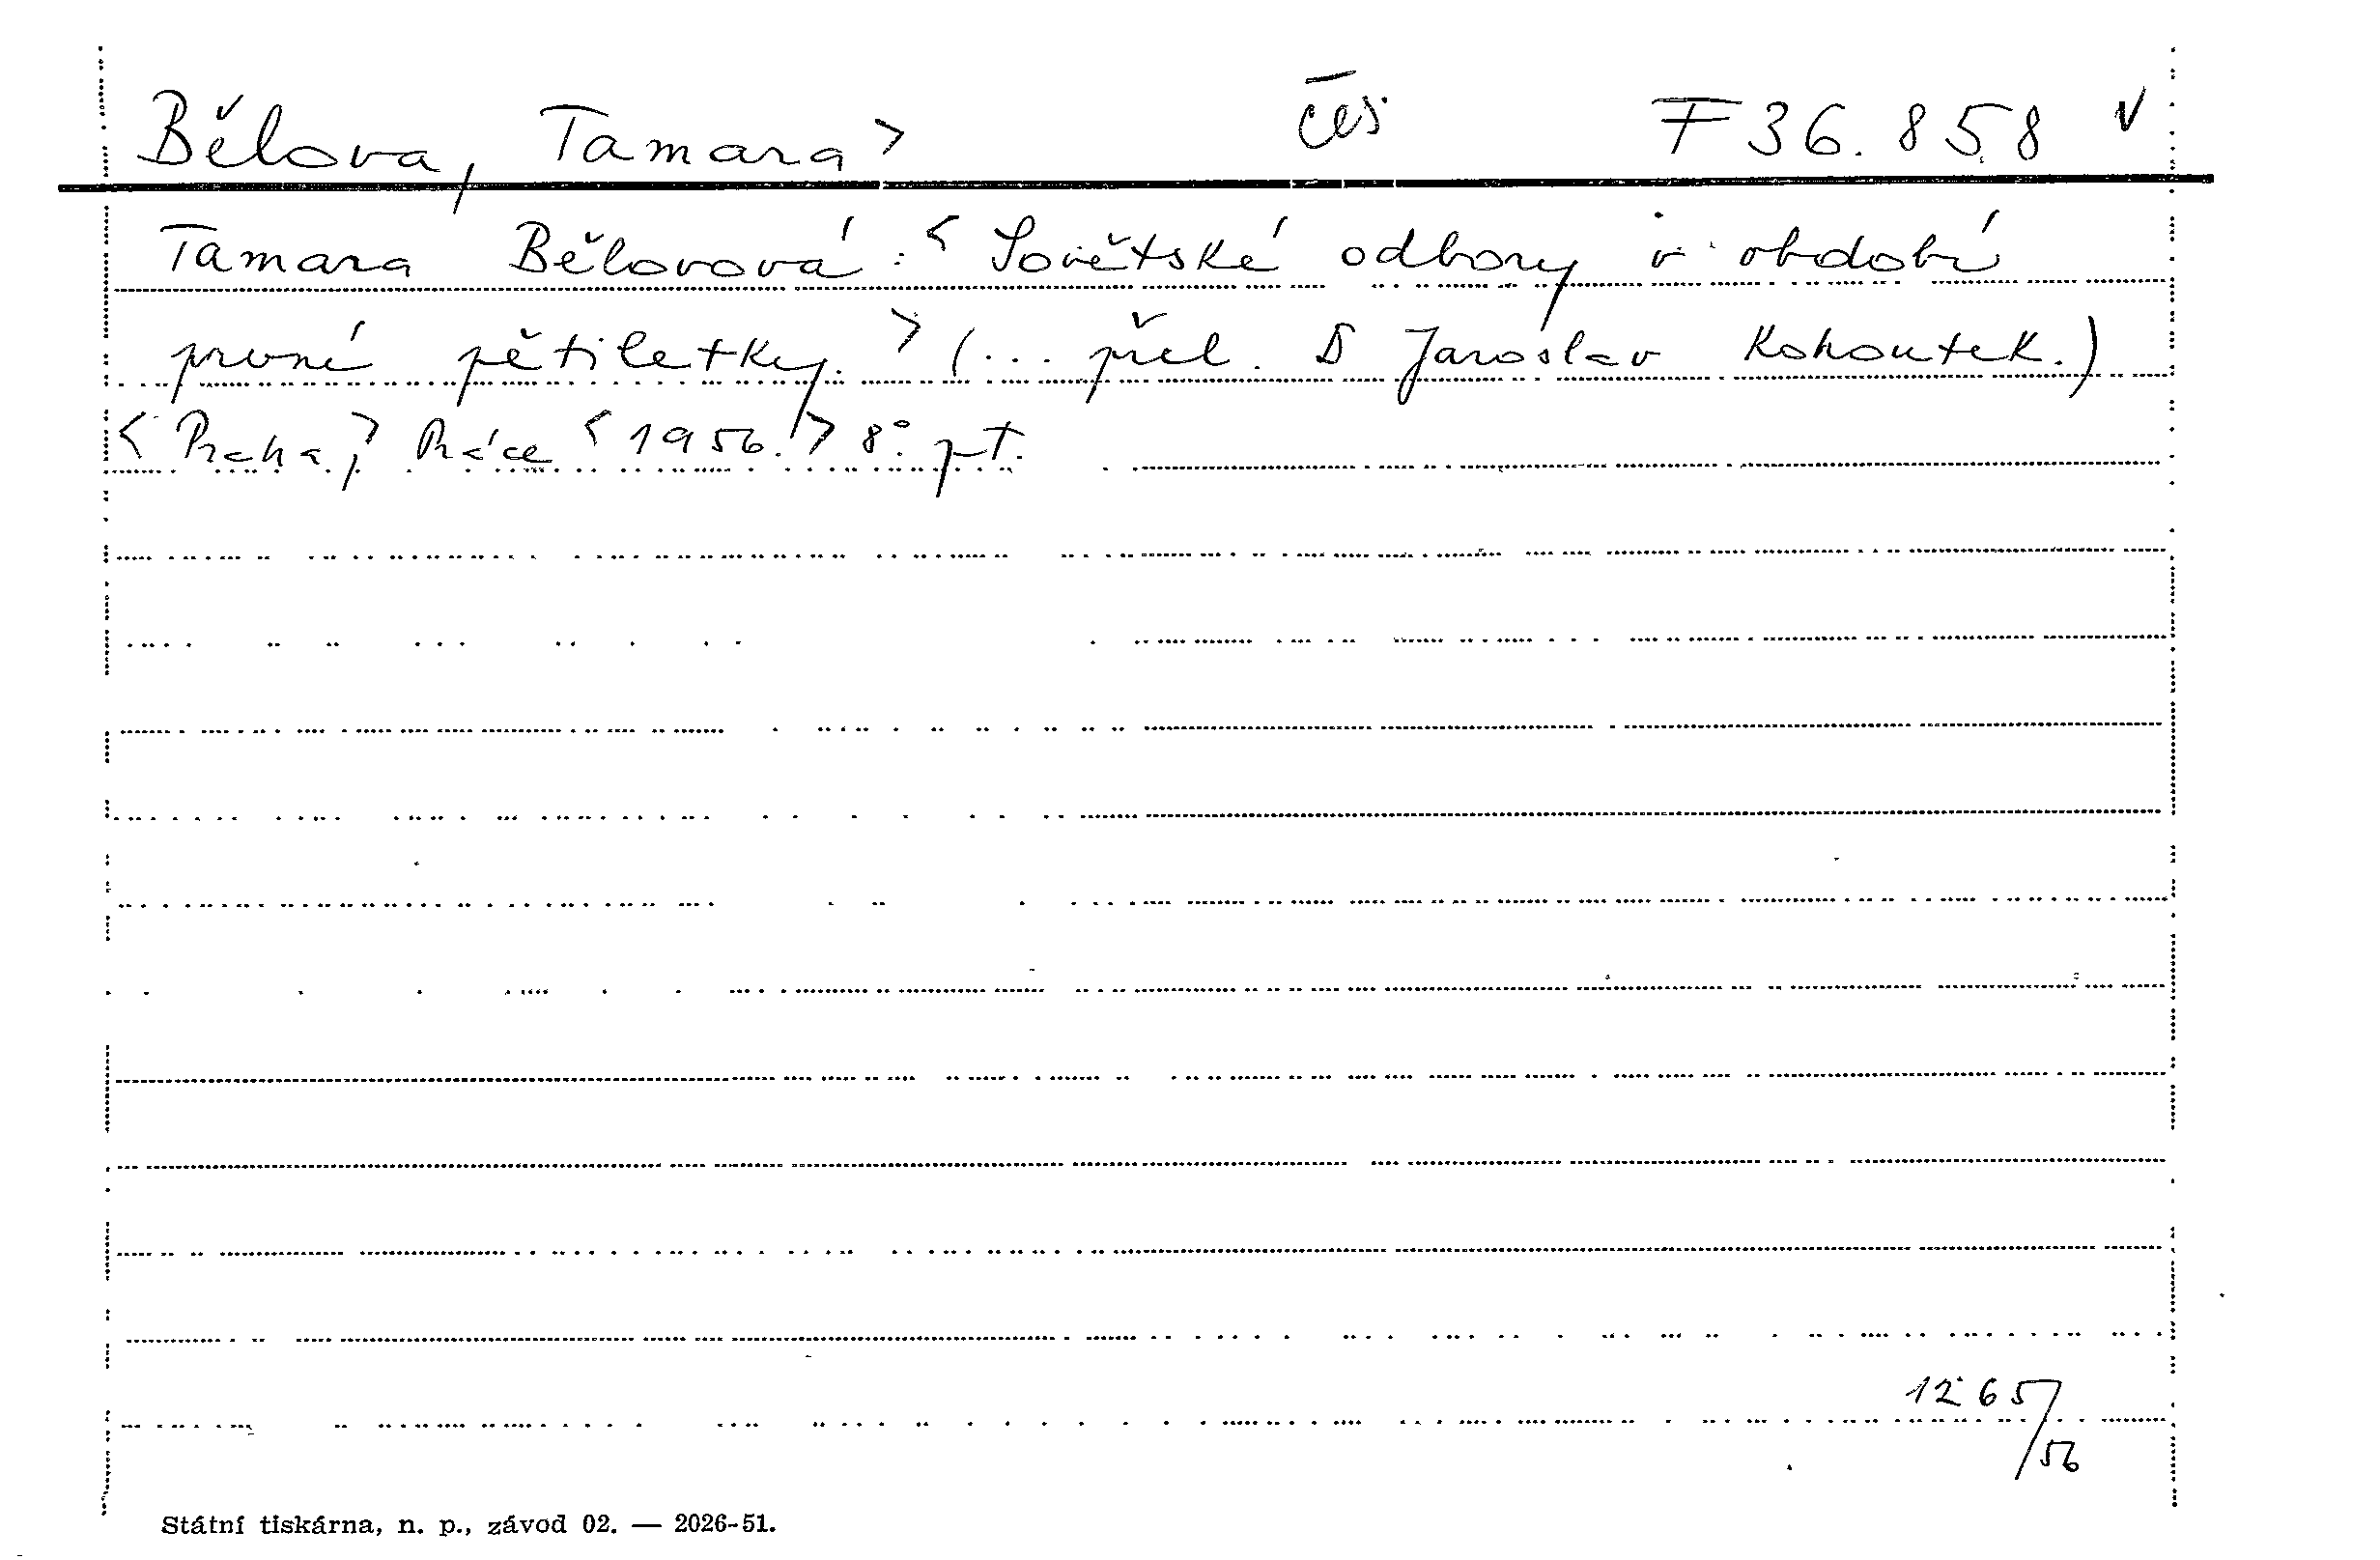 Bělova, Tamara> čes F 36.858 v
Tamara Bělovová: < Sovětské odbory v období
první pětiletky. > (... přel. D Jaroslav Kohoutek.)
< Praha,> Práce < 1956. > 8°. pt.
1265/56
Státní tiskárna, n. p., závod 02. — 2026-51.